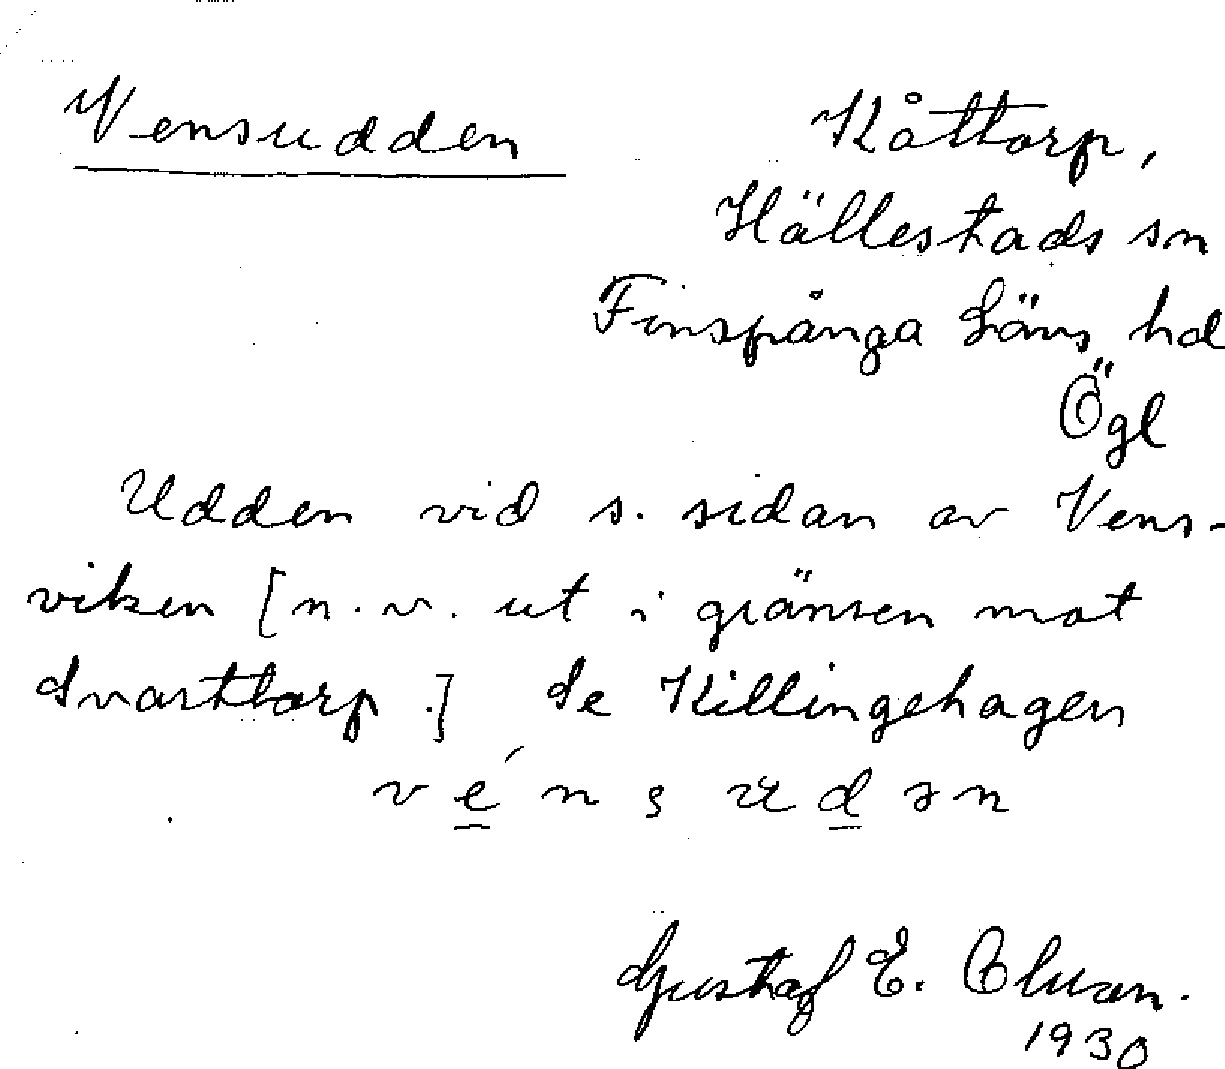 Vensudden
Kåttorp,
Hällestads sn
Finspånga Läns hd
Ögl
Udden vid s. sidan av Vens-
viken [n.v. ut i gränsen mot
Svarttorp.] Se Killingehagen
vénsudən
Gustaf E.
1930